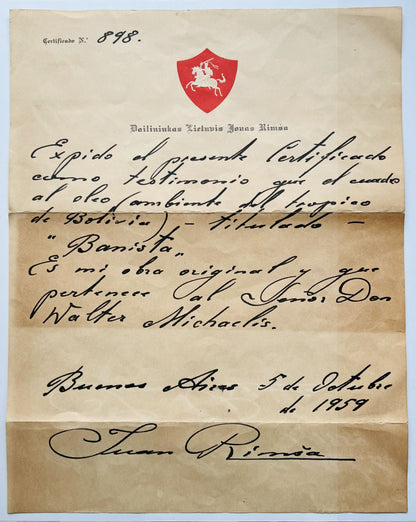 Certificado N.º 898.
Dailininkas Lietuvis Jonas Rimša
Expido el presente Certificado
como testimonio que el cuadro
al oleo (ambiente del tropico
de Bolivia) - titulado -
"Banista"
Es mi obra original y que
pertenece al Señor Don
Walter Michaelis.
Buenos Aires 5 de Octubre
de 1959
Juan Rimša